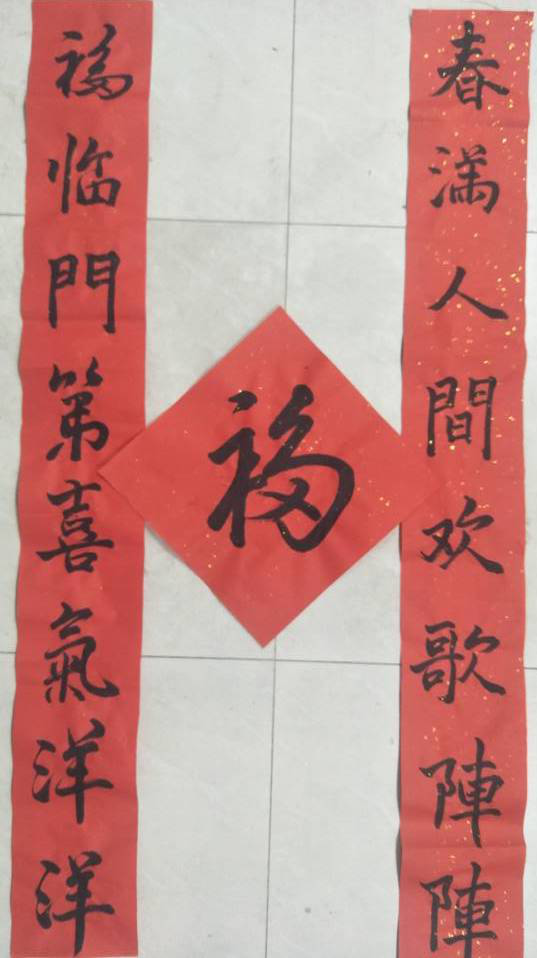 春满人間欢歌陣陣
福
福临門第喜氣洋洋